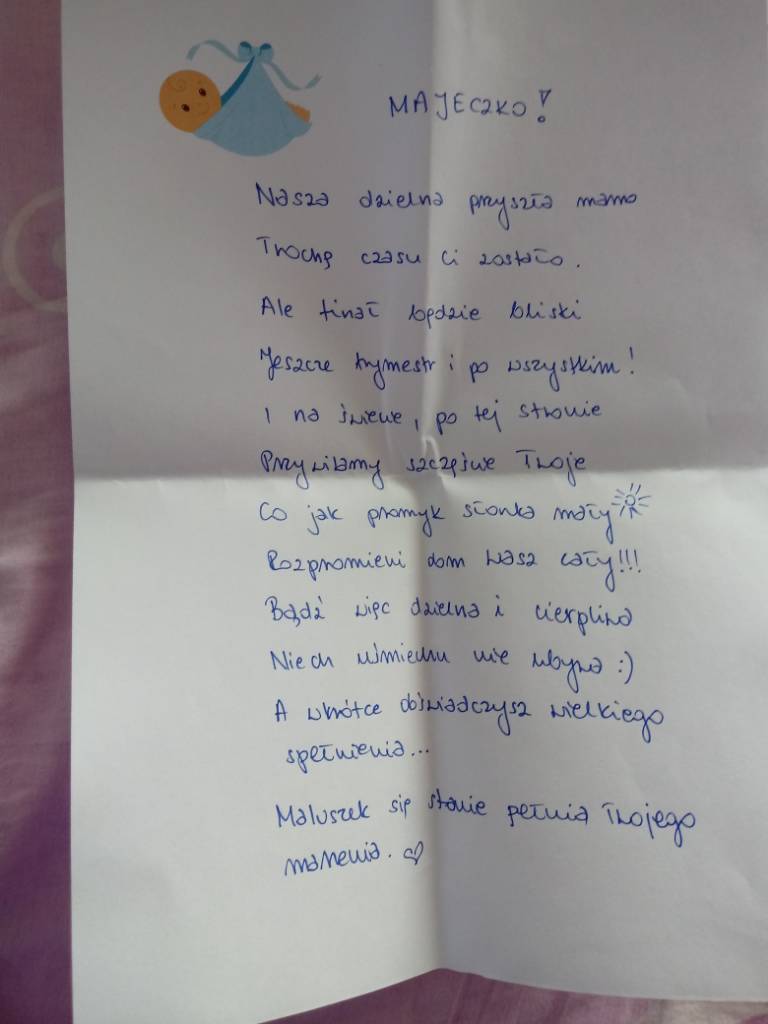 MAJECZKO!
Nasza dzielna przyszła mamo
Trochę czasu Ci zostało.
Ale finał będzie bliski
Jeszcze trymestr i po wszystkim!
I na świecie, po tej stronie
Przywitamy szczęście Twoje
Co jak promyk słonka mały
Rozpromieni dom Wasz cały!!!
Bądź więc dzielna i cierpliwa
Niech uśmiechu nie ubywa :)
A wkrótce doświadczysz wielkiego
spełnienia...
Maluszek się stanie pełnia Twojego
marzenia. ♡